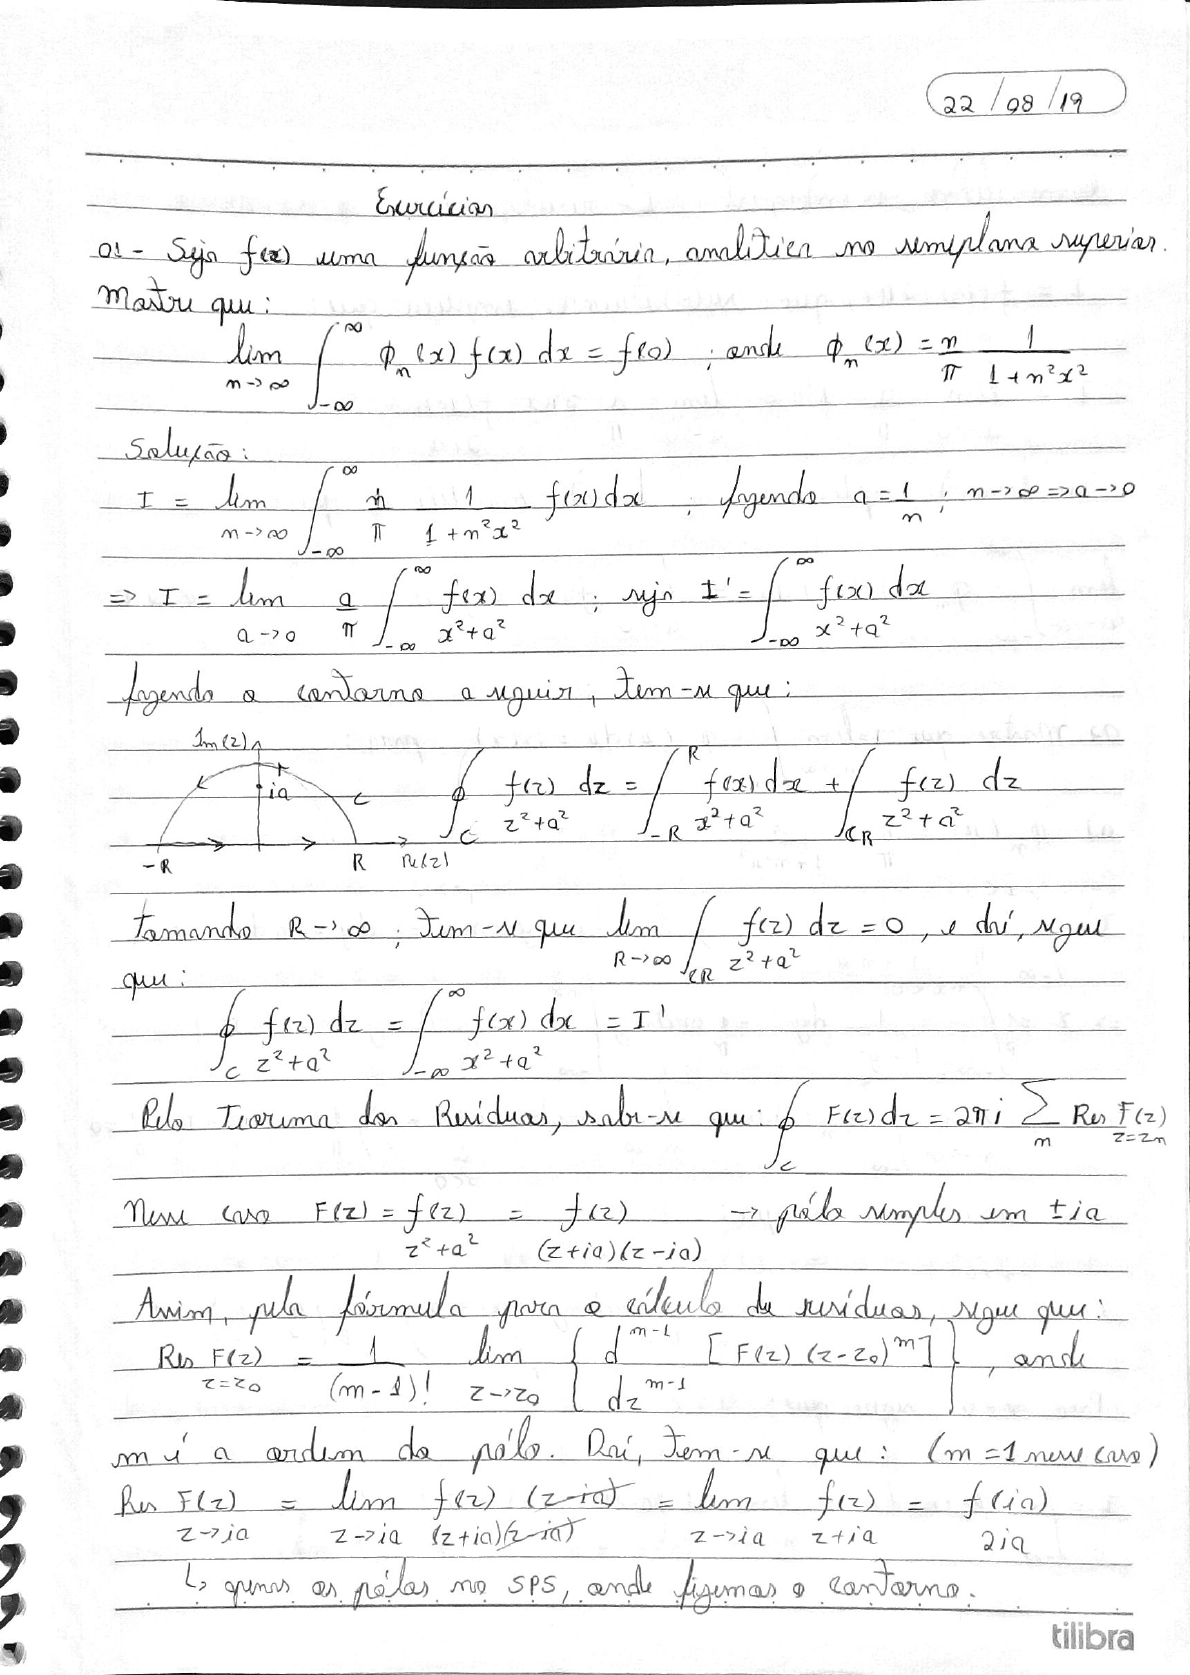 22/08/19
Exercícios
01- Seja f(x) uma função arbitrária, analítica no semiplano superior.
Mostre que:
lim n→∞ ∫_{-∞}^{∞} ϕ_n(x) f(x) dx = f(0) ; onde ϕ_n(x) = n/π 1/(1+n²x²)
Solução:
I = lim n→∞ ∫_{-∞}^{∞} n/π 1/(1+n²x²) f(x) dx ; fazendo a = 1/n ; n→∞ ⇒ a→0
⇒ I = lim a→0 a/π ∫_{-∞}^{∞} f(x)/(x²+a²) dx ; seja I' = ∫_{-∞}^{∞} f(x)/(x²+a²) dx
fazendo o contorno a seguir, tem-se que:
Im(z) + ia C -R R Re(z)
∮_C f(z)/(z²+a²) dz = ∫_{-R}^{R} f(x)/(x²+a²) dx + ∫_{CR} f(z)/(z²+a²) dz
tomando R→∞ ; tem-se que lim R→∞ ∫_{CR} f(z)/(z²+a²) dz = 0, e daí, segue
que:
∮_C f(z)/(z²+a²) dz = ∫_{-∞}^{∞} f(x)/(x²+a²) dx = I'
Pelo Teorema dos Resíduos, sabe-se que: ∮_C F(z)dz = 2πi Σ_n Res F(z) z=z_n
Nesse caso F(z) = f(z)/(z²+a²) = f(z)/((z+ia)(z-ia)) → pólo simples em ±ia
Assim, pela fórmula para o cálculo de resíduos, segue que:
Res F(z) z=z0 = 1/(m-1)! lim z→z0 { d^{m-1}/dz^{m-1} [F(z) (z-z0)^m] }, onde
m é a ordem do pólo. Daí, tem-se que: (m=1 nesse caso)
Res F(z) z→ia = lim z→ia f(z) (z-ia)/((z+ia)(z-ia)) = lim z→ia f(z)/(z+ia) = f(ia)/2ia
↳ apenas os pólos no SPS, onde fizemos o contorno.
tilibra